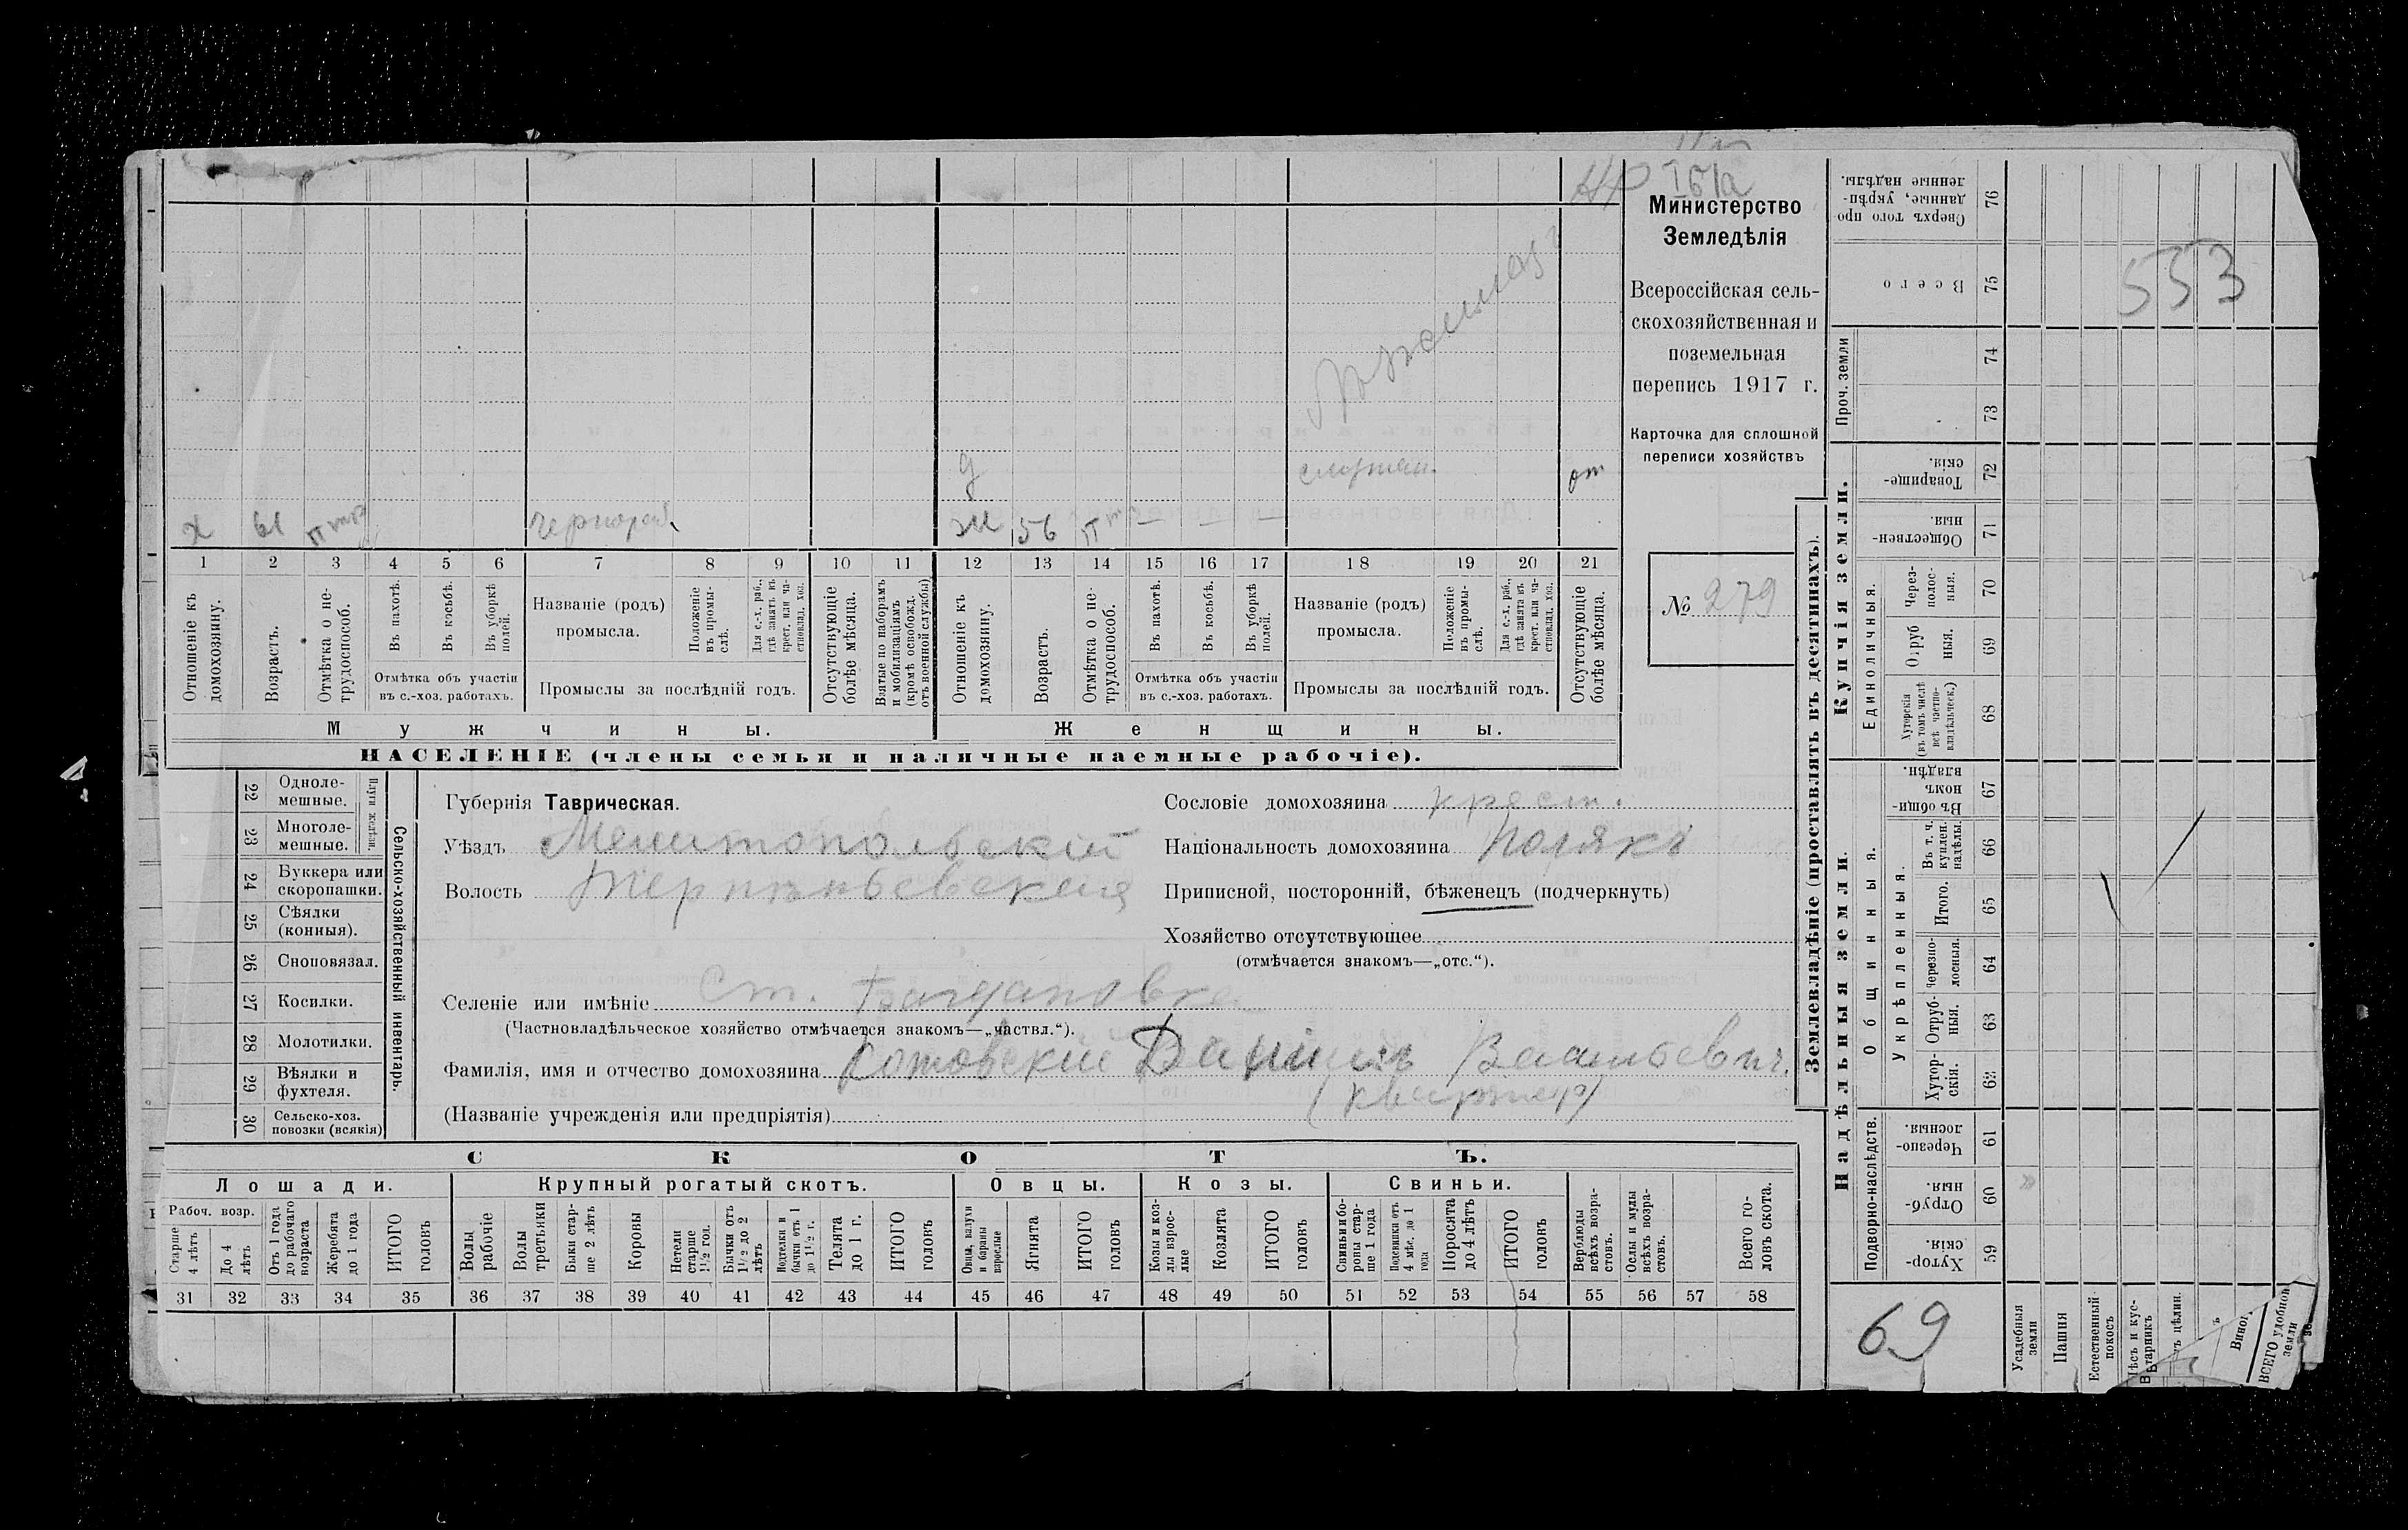 НР
Министерство
Земледѣлія
Всероссійская сель-
скохозяйственная и
поземельная
перепись 1917 г.
Карточка для сплошной
переписи хозяйствъ
№ 279
д
от
х 61 ж 56
1 2 3 4 5 6 7 8 9 10 11 12 13 14 15 16 17 18 19 20 21
Отношеніе къ домохозяину.
Возрастъ.
Отмѣтка о не-трудоспособ.
Въ пахотѣ.
Въ косьбѣ.
Въ уборкѣ полей.
Отмѣтка объ участіи
въ с.-хоз. работахъ.
Названіе (родъ)
промысла.
Положеніе въ промы-слѣ.
Для с.-х. раб., гдѣ занятъ въ крест. или ча-стновлад. хоз.
Промыслы за послѣдній годъ.
Отсутствующіе болѣе мѣсяца.
Взятые по наборамъ и мобилизаціямъ (кромѣ освобожд. отъ военной службы)
Отношеніе къ домохозяину.
Возрастъ.
Отмѣтка о не-трудоспособ.
Въ пахотѣ.
Въ косьбѣ.
Въ уборкѣ полей.
Отмѣтка объ участіи
въ с.-хоз. работахъ.
Названіе (родъ)
промысла.
Положеніе въ промы-слѣ.
Для с.-х. раб., гдѣ занята въ крест. или ча-стновлад. хоз.
Промыслы за послѣдній годъ.
Отсутствующіе болѣе мѣсяца.
Мужчины. Женщины.
НАСЕЛЕНІЕ (члены семьи и наличные наемные рабочіе).
22 Одноле-мешные.
23 Многоле-мешные.
24 Буккера или скоропашки.
25 Сѣялки (конныя).
26 Сноповязал.
27 Косилки.
28 Молотилки.
29 Вѣялки и фухтеля.
30 Сельско-хоз. повозки (всякія)
Сельско-хозяйственный инвентарь.
Губернія Таврическая.
Уѣздъ Мелитопольскій
Волость Терпѣньевская
Сословіе домохозяина крест.
Національность домохозяина Полякъ
Приписной, посторонній, бѣженецъ (подчеркнуть)
Хозяйство отсутствующее
(отмѣчается знакомъ—„отс.“).
Селеніе или имѣніе Ст. Богдановка
(Частновладѣльческое хозяйство отмѣчается знакомъ—„частвл.“).
Фамилія, имя и отчество домохозяина Котовскій Данiилъ Васильевич.
(Названіе учрежденія или предпріятія) (квартир)
СКОТЪ.
Лошади. Крупный рогатый скотъ. Овцы. Козы. Свиньи.
Рабоч. возр.
Старше 4 лѣтъ
До 4 лѣтъ
Отъ 1 года до рабочаго возраста
Жеребята до 1 года
ИТОГО головъ
Волы рабочіе
Волы третьяки
Быки стар-ше 2 лѣтъ
Коровы
Нетели старше 1½ год.
Бычки отъ 1½ до 2 лѣтъ
Нотелки и бычки отъ 1 до 1½ г.
Телята до 1 г.
ИТОГО головъ
Овцы, валухи и бараны взрослые
Ягнята
ИТОГО головъ
Козы и коз-лы взрос-лые
Козлята
ИТОГО головъ
Свиньи и бо-ровы стар-ше 1 года
Подсвинки отъ 4 мѣс. до 1 года
Поросята до 4 лѣтъ
ИТОГО головъ
Верблюды всѣхъ возра-стовъ.
Ослы и мулы всѣхъ возра-стовъ.
Всего го-ловъ скота.
31 32 33 34 35 36 37 38 39 40 41 42 43 44 45 46 47 48 49 50 51 52 53 54 55 56 57 58
Землевладѣніе (проставлять въ десятинахъ).
Сверхъ того про-данные, укрѣп-ленные надѣлы. 76
Всего 75
553
Проч. земли
74
73
Купчія земли.
Товарище-скія. 72
Обществен-ныя. 71
Единоличныя.
Через-полос-ныя. 70
Отруб-ныя. 69
Хуторскія (въ томъ числѣ всѣ частно-владѣльческ.) 68
Надѣльныя земли.
Общинныя.
Въ общи-номъ владѣн. 67
Укрѣпленныя.
Въ т. ч. куплен. надѣлы. 66
Итого. 65
Черезпо-лосныя. 64
Отруб-ныя. 63
Хутор-скія. 62
Подворно-наслѣдств.
Черезпо-лосныя. 61
Отруб-ныя. 60
Хутор-скія. 59
69
Усадебныя земли
Пашня
Естественный покосъ
ВСЕГО удобной земли